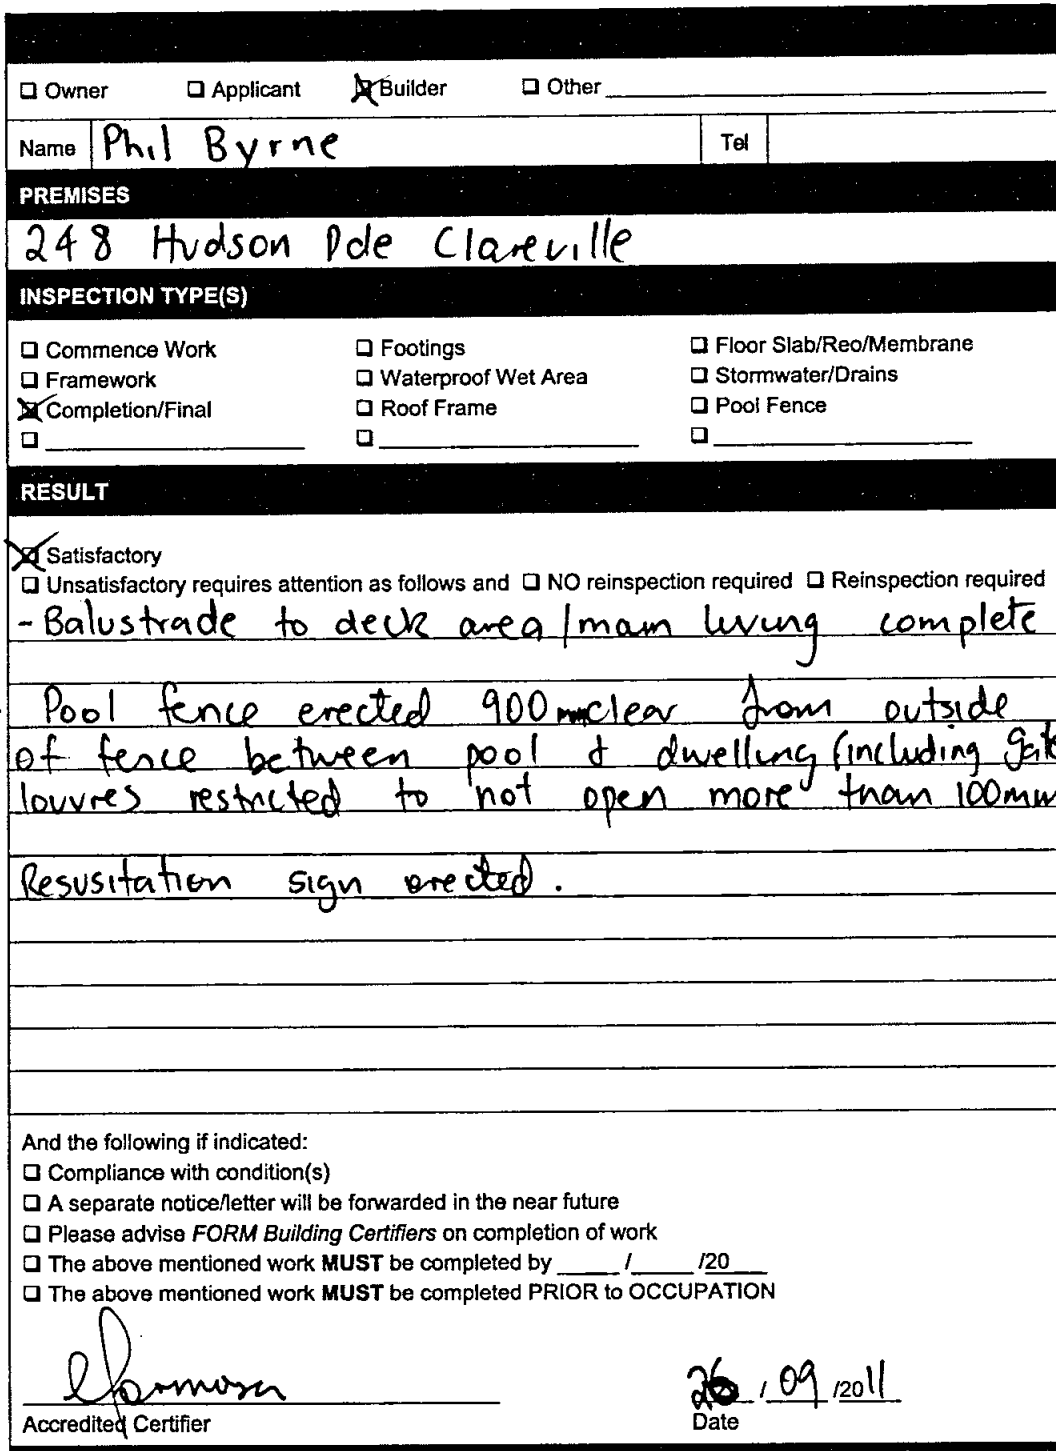 ☐ Owner ☐ Applicant ☒ Builder ☐ Other
Name Phil Byrne Tel
PREMISES
248 Hudson Pde Clareville
INSPECTION TYPE(S)
☐ Commence Work ☐ Footings ☐ Floor Slab/Reo/Membrane
☐ Framework ☐ Waterproof Wet Area ☐ Stormwater/Drains
☒ Completion/Final ☐ Roof Frame ☐ Pool Fence
☐ ☐ ☐
RESULT
☒ Satisfactory
☐ Unsatisfactory requires attention as follows and ☐ NO reinspection required ☐ Reinspection required
- Balustrade to deck area/main living complete
Pool fence erected 900mm clear from outside
of fence between pool & dwelling (including gate
louvres restricted to not open more than 100mm
Resusitation sign erected.
And the following if indicated:
☐ Compliance with condition(s)
☐ A separate notice/letter will be forwarded in the near future
☐ Please advise FORM Building Certifiers on completion of work
☐ The above mentioned work MUST be completed by ____ /____ /20__
☐ The above mentioned work MUST be completed PRIOR to OCCUPATION
/ 09 /2011
Accredited Certifier Date